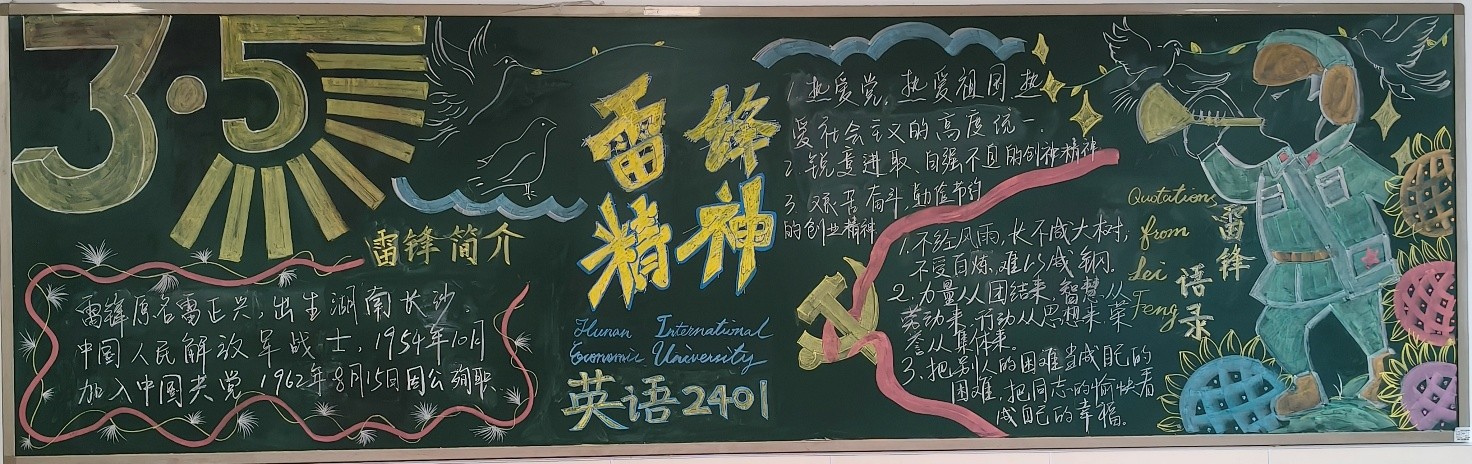 3·5
雷锋简介
雷锋原名雷正兴,出生湖南长沙.
中国人民解放军战士,1954年10月
加入中国共党 1962年8月15日因公殉职
雷锋
精神
Hunan International
Economic University
英语2401
1.热爱党,热爱祖国,热
爱社会主义的高度统一.
2.锐意进取、自强不息的创神精神
3.艰苦奋斗,勤俭节约
的创业精神
Quotations
from
Lei
Feng
雷锋
语录
1.不经风雨,长不成大树;
不受百炼,难以成钢。
2.力量从团结来,智慧从
劳动来,行动从思想来,荣
誉从集体来。
3.把别人的困难当成自己的
困难,把同志的愉快看
成自己的幸福。